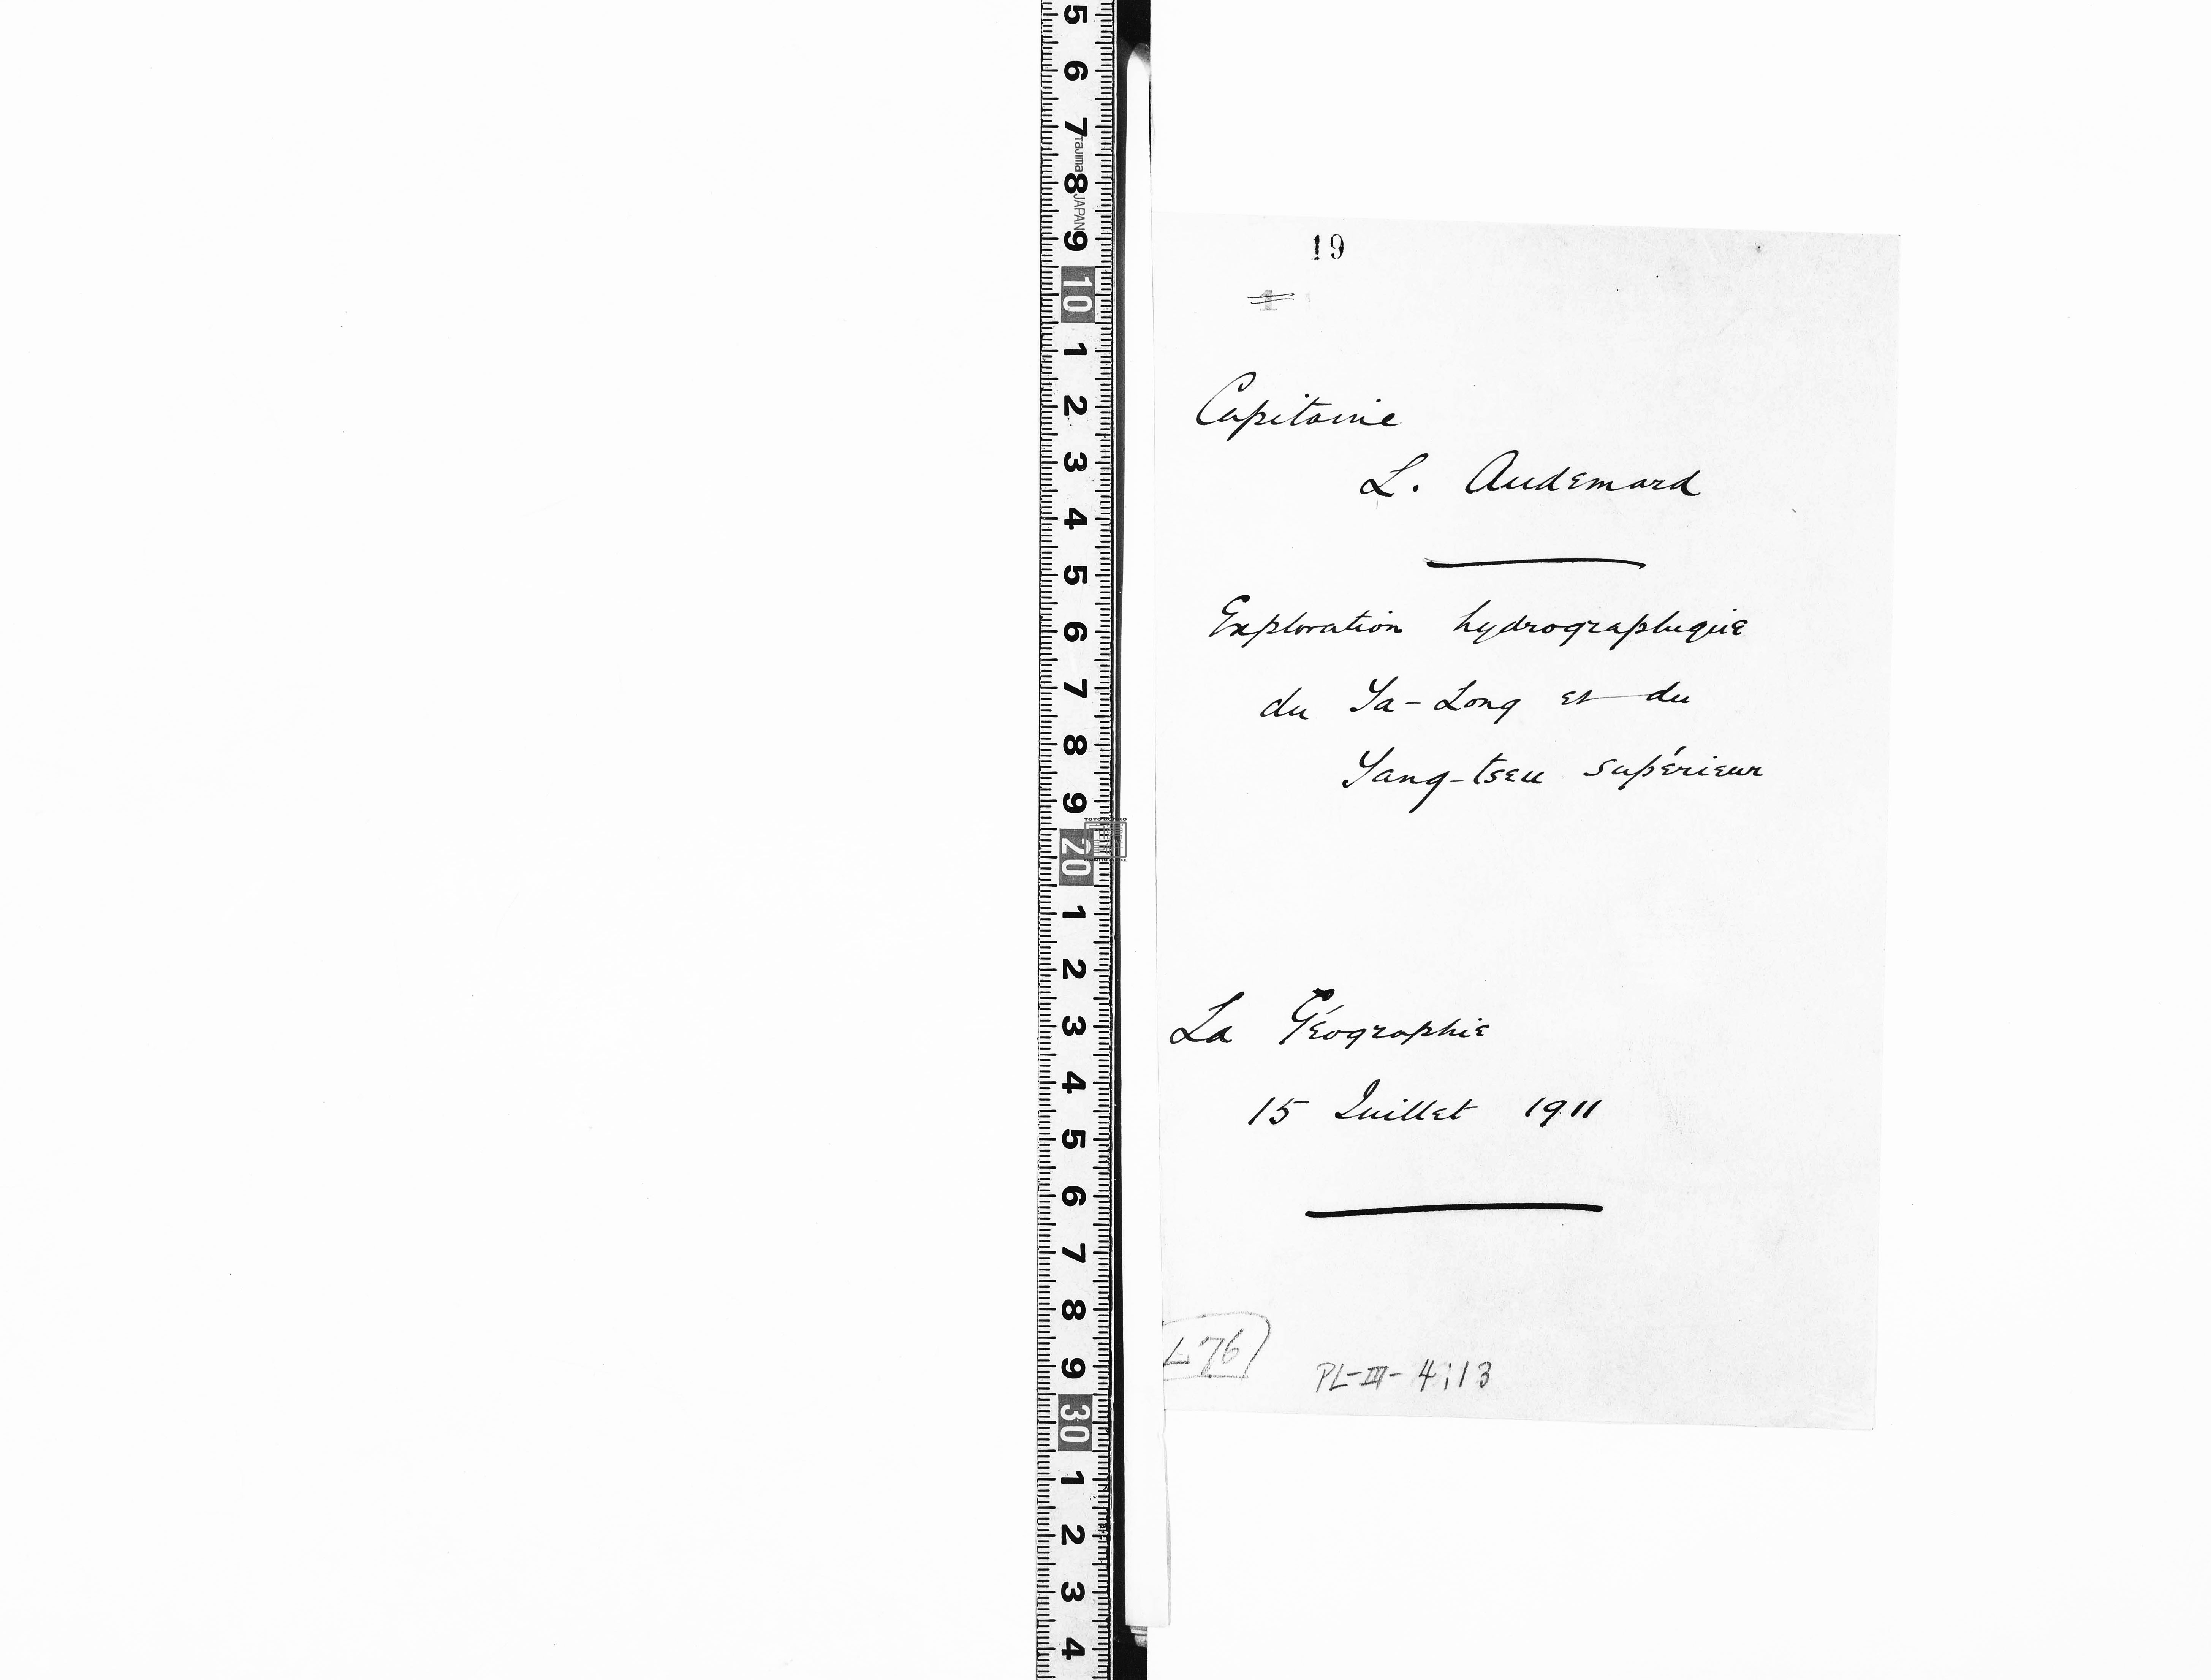 19
1
Capitaine
L. Audemard
Exploration hydrographique
du Ya-Long et du
Yang-tseu supérieur
La Géographie
15 Juillet 1911
L76
PL-III-4;13
5 6 7 8 9 10 1 2 3 4 5 6 7 8 9 20 1 2 3 4 5 6 7 8 9 30 1 2 3 4
Tajima JAPAN